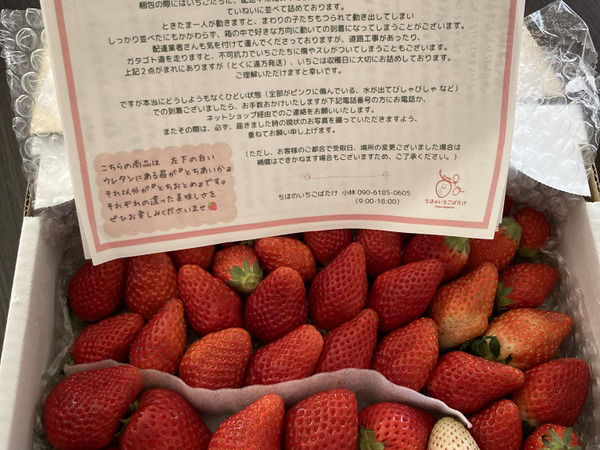 梱包の際にはいちごたちに
ていねいに並べて詰めております。
ときたま一人が動きますと、まわりの子たちもつられて動き出してしまい
しっかり並べたにもかかわらず、箱の中で好きな方向に動いての到着になってしまうことがございます。
配達業者さんも気を付けて運んでくださっておりますが、道路工事があったり、
ガタゴト道を走りますと、不可抗力でいちごたちに傷やスレがついてしまうこともございます。
上記2点がまれにありますが(とくに遠方発送)、いちごは収穫日に大切にお詰めしております。
ご理解いただけますと幸いです。
ですが本当にどうしようもなくひどい状態(全部がピンクに傷んでいる、水が出てびしゃびしゃ など)
での到着がございましたら、お手数おかけいたしますが下記電話番号の方にお電話か、
ネットショップ経由でのご連絡をお願いいたします。
またその際は、必ず、届きました時の現状のお写真を撮っていただきますよう、
重ねてお願い申し上げます。
(ただし、お客様のご都合で受取日、場所の変更ございました場合は
補償はできかねます場合もございますため、ご了承ください。)
こちらの商品は 左下の白い
ウレタンにある苺が『とちあいか』
それ以外が『とちおとめ』です。
それぞれの違った美味しさを
ぜひお楽しみくださいませ
ちほのいちごばたけ 小林 090-6185-0605
(9:00-18:00)
ちほのいちごばたけ